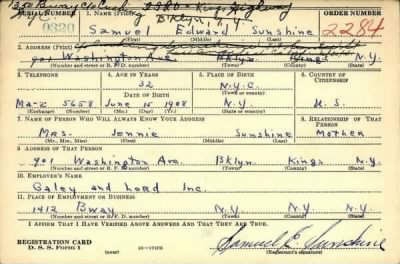 SERIAL NUMBER 1. NAME (Print) ORDER NUMBER
0320 Samuel Edward Sunshine 2284
(First) (Middle) (Last)
2. ADDRESS (Print)
901 Washington Ave. Bklyn. Kings N.Y.
(Number and street or R. F. D. number) (Town) (County) (State)
3. TELEPHONE 4. AGE IN YEARS 5. PLACE OF BIRTH 6. COUNTRY OF CITIZENSHIP
32 N.Y.C.
DATE OF BIRTH (Town or county)
Ma-2 5658 June 15 1908 N.Y. U.S.
(Exchange) (Number) (Mo.) (Day) (Yr.) (State or country)
7. NAME OF PERSON WHO WILL ALWAYS KNOW YOUR ADDRESS 8. RELATIONSHIP OF THAT PERSON
Mrs. Jennie Sunshine Mother
(Mr., Mrs., Miss) (First) (Middle) (Last)
9. ADDRESS OF THAT PERSON
901 Washington Ave. Bklyn. Kings N.Y.
(Number and street or R. F. D. number) (Town) (County) (State)
10. EMPLOYER'S NAME
Galey and Lord Inc.
11. PLACE OF EMPLOYMENT OR BUSINESS
1412 Bway N.Y. N.Y. N.Y.
(Number and street or R. F. D. number) (Town) (County) (State)
I AFFIRM THAT I HAVE VERIFIED ABOVE ANSWERS AND THAT THEY ARE TRUE.
REGISTRATION CARD
D. S. S. Form 1 (over) Samuel E. Sunshine
(Registrant's signature)